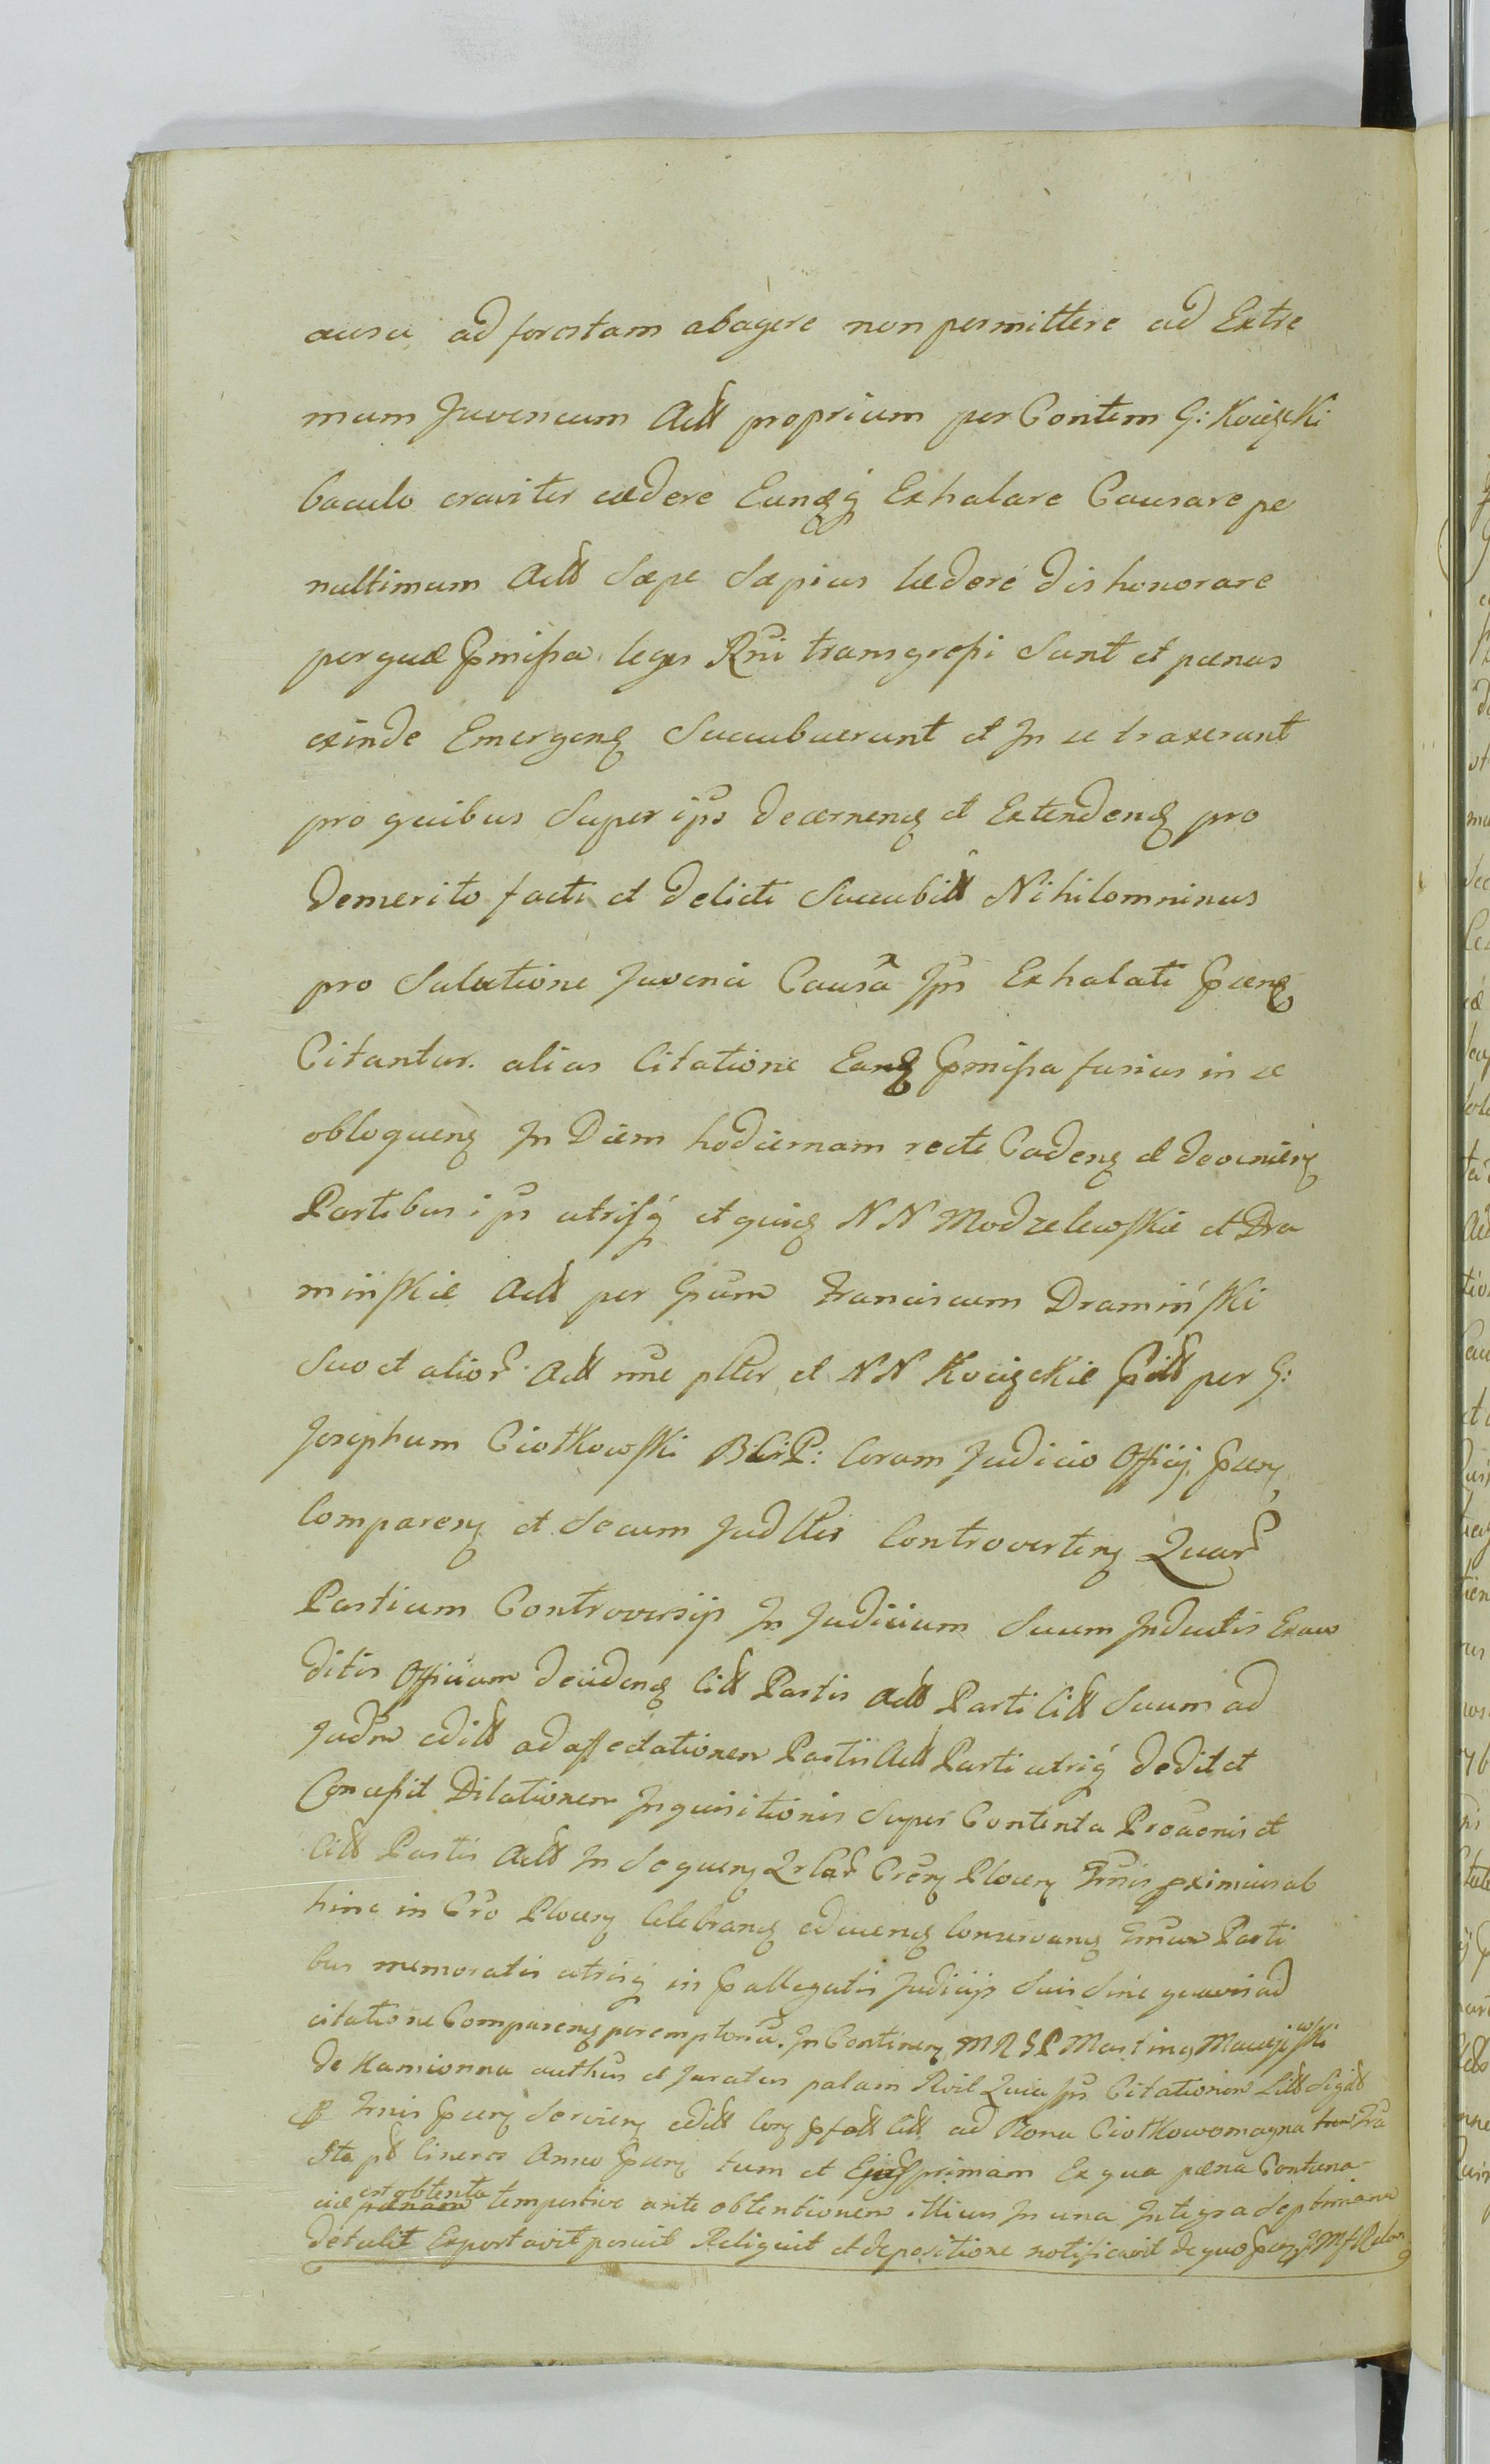 ausu ad forestam abagere non permittere ad Extre
mum Juvencum Actt proprium per Contem G: Kocięcki
baculo graviter cædere Eunqꝫ Exhalare Causare pe
nultimum Actt Sæpe Sæpius lædere dishonorare
per quæ pmissa leges Rni transgressi Sunt et pænas
exinde Emergenꝫ Succubuerunt et In se traxerunt
pro quibus Super ips decernenꝫ et Extendenꝫ pro
demerito facti et delicti Succubitt Nihilominus
pro Solutione Juvenci Causa Ips Exhalati pænꝫ
Citantur. alias Citatione Eanꝫ pmissa fusius in se
obloquenꝫ In Diem hodiernam recte Cadenꝫ et devenienꝫ
Partibus ips utrisqꝫ et quiꝫ NN Modzelewskie et Dra
mińskie Actt per Gsum Franciscum Dramiński
Suo et alior Actt nne plter et NN Kocięckie Citt per G:
Josephum Ciotkowski BCrP: Coram Judicio Officij pænꝫ
Comparenꝫ et Secum Judlter Controvertenꝫ Quar
Partium Controversijs In Judicium Suum Inductis Exau
ditis Officium decidenꝫ Citt Partis Actt Parti Citt Suum ad
Judm editt ad affectationem Partis Actt Parti utriqꝫ dedit et
Concessit Dilationem Inquisitionis Super Contenta Provonis et
Citt Partis Actt In Sequenꝫ Qrlar Crenꝫ Plocenꝫ Tmis pximius ab
hinc in Cro Plocenꝫ Celebranꝫ advenꝫ Conservanꝫ Tmum Parti
bus memoratis utrisqꝫ in pallegatis Judicijs Suis Sine quavis ad
citatione Comparenꝫ peremptoriu. In Continenꝫ MRSP Martinꝫ Maciejewski
de Kamionna authus et Juratus palam Rvit Quia Ips Citationem Citt Sigitt
Tmis pænꝫ Servienꝫ editt Conꝫ pfatt Citt ad Bona Ciotkowo magna
Ita pt Cineres Anno pænꝫ tum et primam Ex qua pæna Contuma
ciæ est obtenta tempestive ante obtentionem illius In una Integra Septimana
detulit Exportavit posuit Reliquit et depositione notificavit de quo pænꝫ JMf Relon